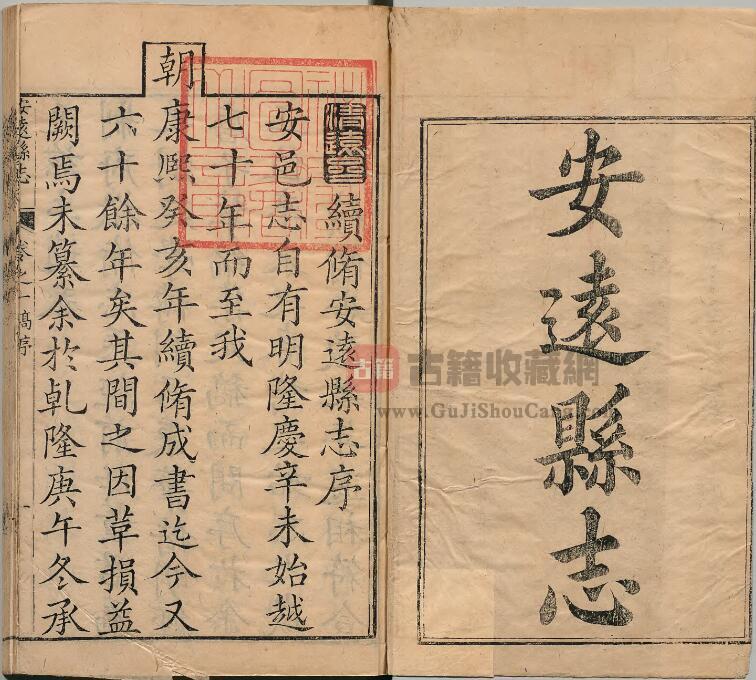 安遠縣志
續脩安遠縣志序
安邑志自有明隆慶辛未始越
七十年而至我
朝康熙癸亥年續脩成書迄今又
六十餘年矣其間之因革損益
闕焉未纂余於乹隆庚午冬承
安遠縣志
卷之一
序
古籍
古籍收藏網
www.GuJiShouCang.com